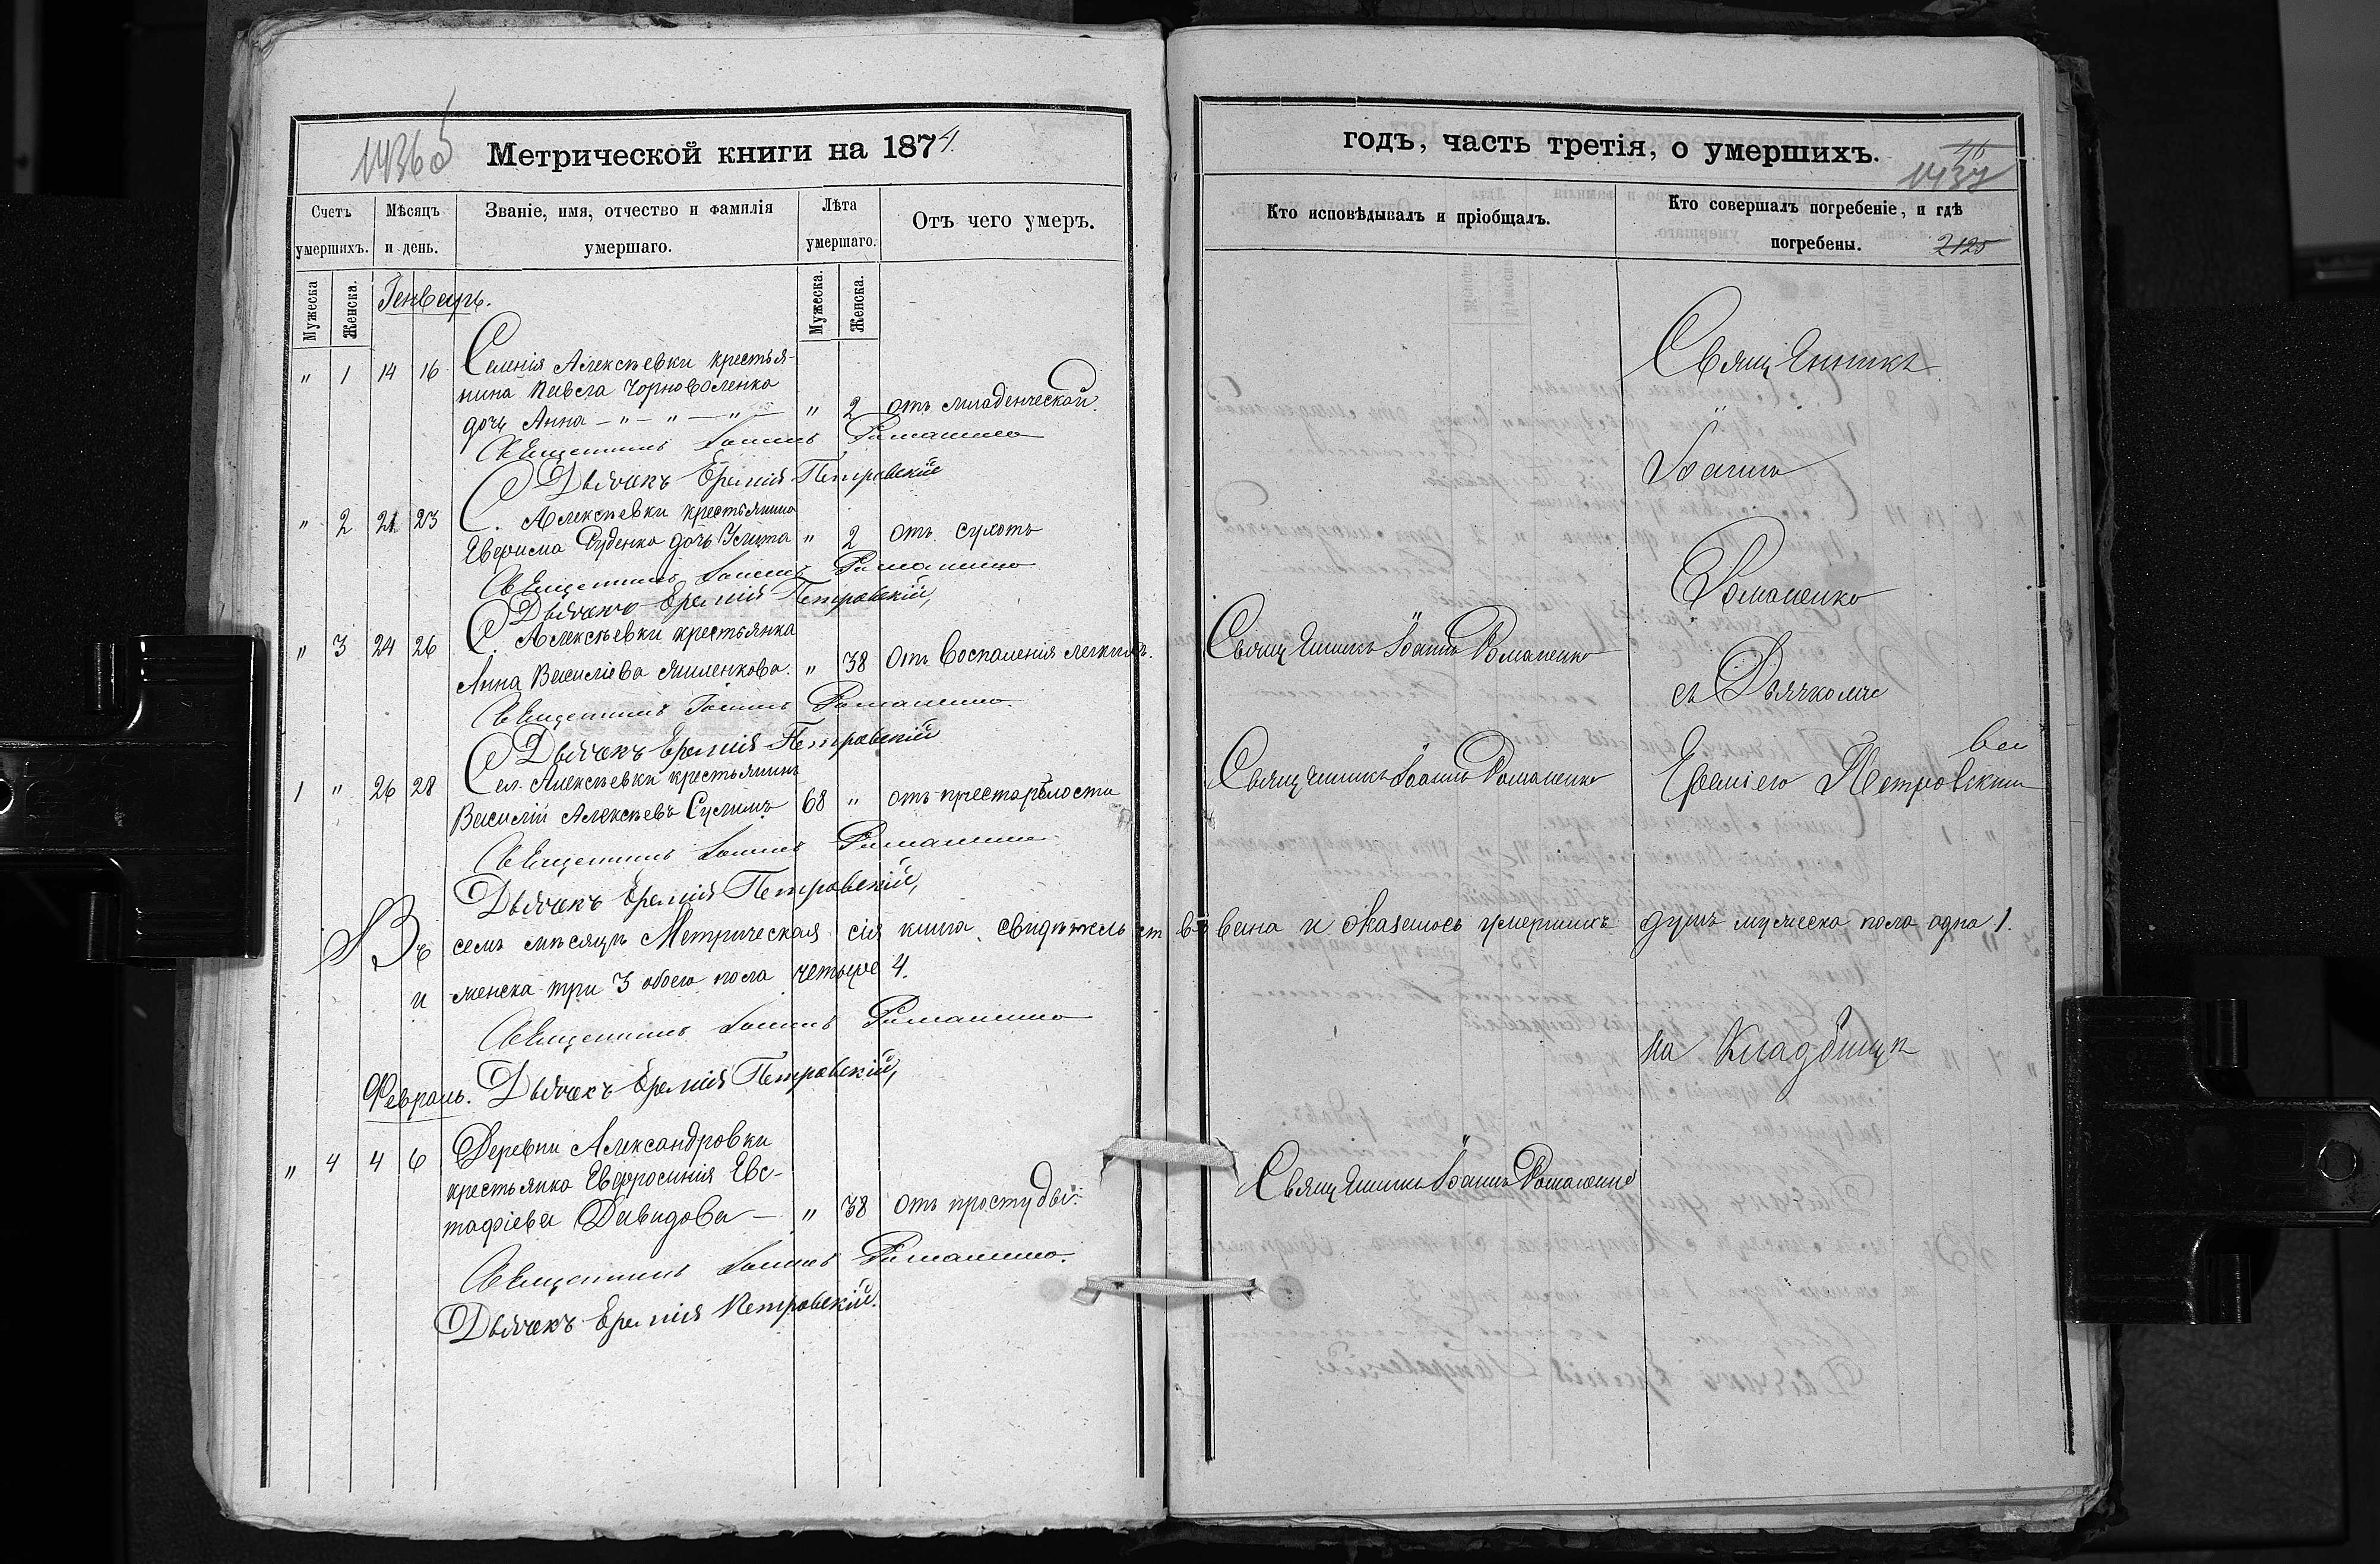 Метрической книги на 1874.
Счетъ умершихъ.
Мѣсяцъ и день.
Званіе, имя, отчество и фамилія умершаго.
Лѣта умершаго.
Отъ чего умеръ.
Мужеска
Женска.
Мужеска.
Женска.
Генварь.
" 1 14 16 Селенія Алексѣевки крестья-
нина Павла Чорноволенка
дочь Анна — " — " — " — " 2 отъ младенческой.
Священникъ Іоаннъ Романенко
Дьячекъ Еремій Петровскій
" 2 21 23 С. Алексѣевки крестьянина
Руденко дочь " 2 отъ сухотъ
Священникъ Іоаннъ Романенко
Дьячекъ Еремій Петровскій,
" 3 24 26 С. Алексѣевки крестьянка
Анна Василіева " 38 Отъ воспаленія легкихъ.
Священникъ Іоаннъ Романенко.
Дьячекъ Еремій Петровскій
1 " 26 28 Сел. Алексѣевки крестьянинъ
Василій Алексѣевъ 68 " отъ престарѣлости
Священникъ Іоаннъ Романенко
Дьячекъ Еремій Петровскій,
Въ семъ мѣсяцѣ Метрическая сія книга свидѣтельствована и оказалось умершихъ душъ мужеска пола одна 1.
и женска три 3 обоего пола четыре 4.
Священникъ Іоаннъ Романенко
Февраль. Дьячекъ Еремій Петровскій,
" 4 4 6 Деревни Александровки
крестьянка Евфросинія Евс-
тафіева Давидова — " 38 Отъ простуды.
Священникъ Іоаннъ Романенко.
Дьячекъ Еремій Петровскій.
годъ, часть третія, о умершихъ.
1437
Кто исповѣдывалъ и пріобщалъ.
Кто совершалъ погребеніе, и гдѣ
погребены.
2125
Священникъ
Іоаннъ
Романенко
Священникъ Іоаннъ Романенко
съ Дьячкомъ
Священникъ Іоаннъ Романенко
Еремією Петровскимъ
на Кладбищѣ
Священникъ Іоаннъ Романенко